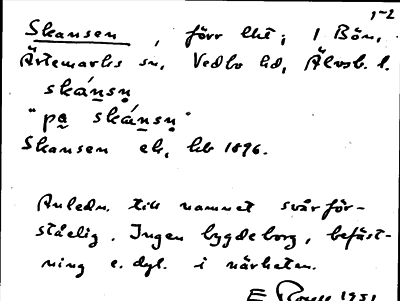 1-2
Skansen, förr lht; 1 Bön,
Ärtemarks sn, Vedbo hd, Älvsb. l.
skánsn̥
"pa̰ skánsn̥"
Skansen ek, kb 1896.
Anledn. till namnet svårför-
ståelig. Ingen bygdeborg, befäst-
ning e. dyl. i närheten.
E 1931